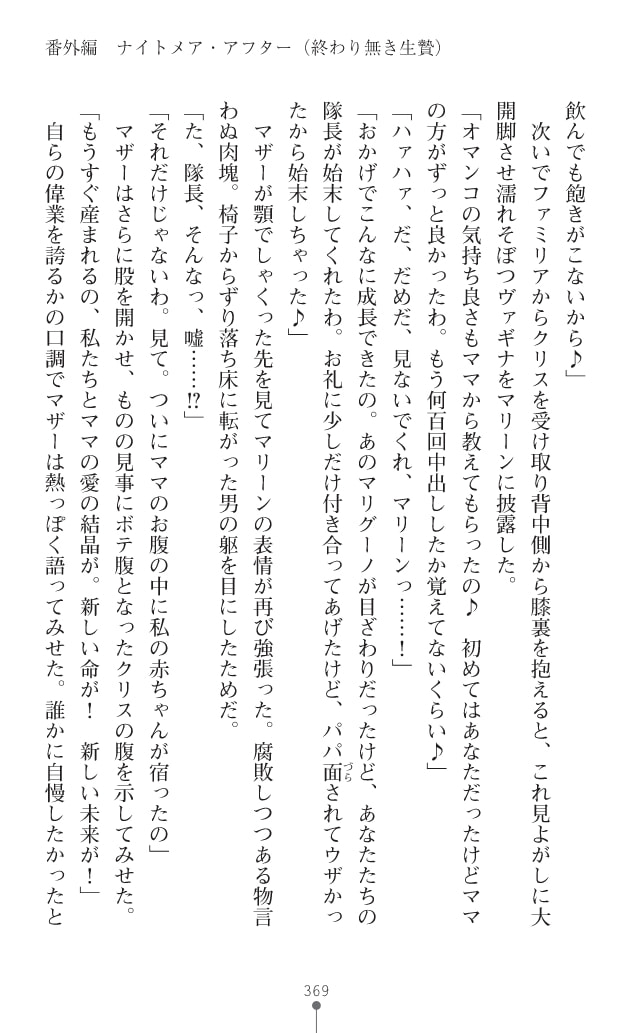 番外編　ナイトメア・アフター（終わり無き生贄）
飲んでも飽きがこないから♪」
　次いでファミリアからクリスを受け取り背中側から膝裏を抱えると、これ見よがしに大
開脚させ濡れそぼつヴァギナをマリーンに披露した。
「オマンコの気持ち良さもママから教えてもらったの♪　初めてはあなただったけどママ
の方がずっと良かったわ。もう何百回中出ししたか覚えてないくらい♪」
「ハァハァ、だ、だめだ、見ないでくれ、マリーンっ……！」
「おかげでこんなに成長できたの。あのマリグーノが目ざわりだったけど、あなたたちの
隊長が始末してくれたわ。お礼に少しだけ付き合ってあげたけど、パパ面づらされてウザかっ
たから始末しちゃった♪」
　マザーが顎でしゃくった先を見てマリーンの表情が再び強張った。腐敗しつつある物言
わぬ肉塊。椅子からずり落ち床に転がった男の躯を目にしたためだ。
「た、隊長、そんなっ、嘘……!?」
「それだけじゃないわ。見て。ついにママのお腹の中に私の赤ちゃんが宿ったの」
　マザーはさらに股を開かせ、ものの見事にボテ腹となったクリスの腹を示してみせた。
「もうすぐ産まれるの、私たちとママの愛の結晶が。新しい命が！　新しい未来が！」
　自らの偉業を誇るかの口調でマザーは熱っぽく語ってみせた。誰かに自慢したかったと
369